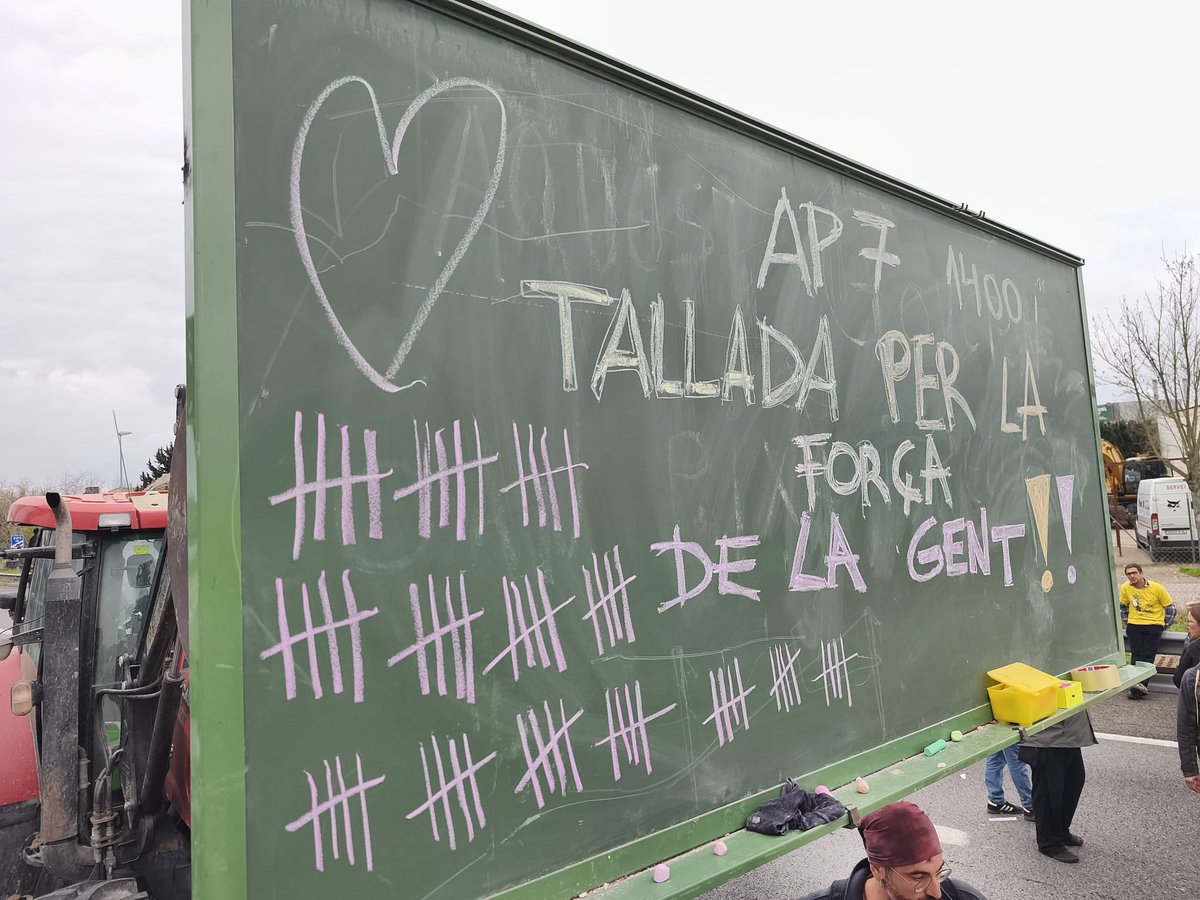 AP 7
1400
TALLADA PER LA
FORÇA
DE LA GENT!!
SERVEI